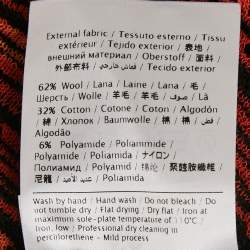 External fabric / Tessuto esterno / Tissu
extérieur / Tejido exterior / 表地 /
внешний материал / Oberstoff / 面料 /
外部布料 / قماش خارجي / Tecido exterior
62% Wool / Lana / Laine / Lana / 毛 /
Шерсть / Wolle / 羊毛 / 羊毛 / صوف / Lã
32% Cotton / Cotone / Coton / Algodón
/ 綿 / Хлопок / Baumwolle / 棉 / 棉 /
Algodão
6% Polyamide / Poliammide /
Polyamide / Poliamida / ナイロン /
Полиамид / Polyamid / 锦纶 / 聚醯胺纖維 /
尼龍 / Poliamida
Wash by hand / Hand wash / Do not bleach / Do
not tumble dry / Flat drying / Dry flat / Iron at
maximum sole-plate temperature of 110°C /
Iron, low / Professional dry cleaning in
perchlorethene - Mild process